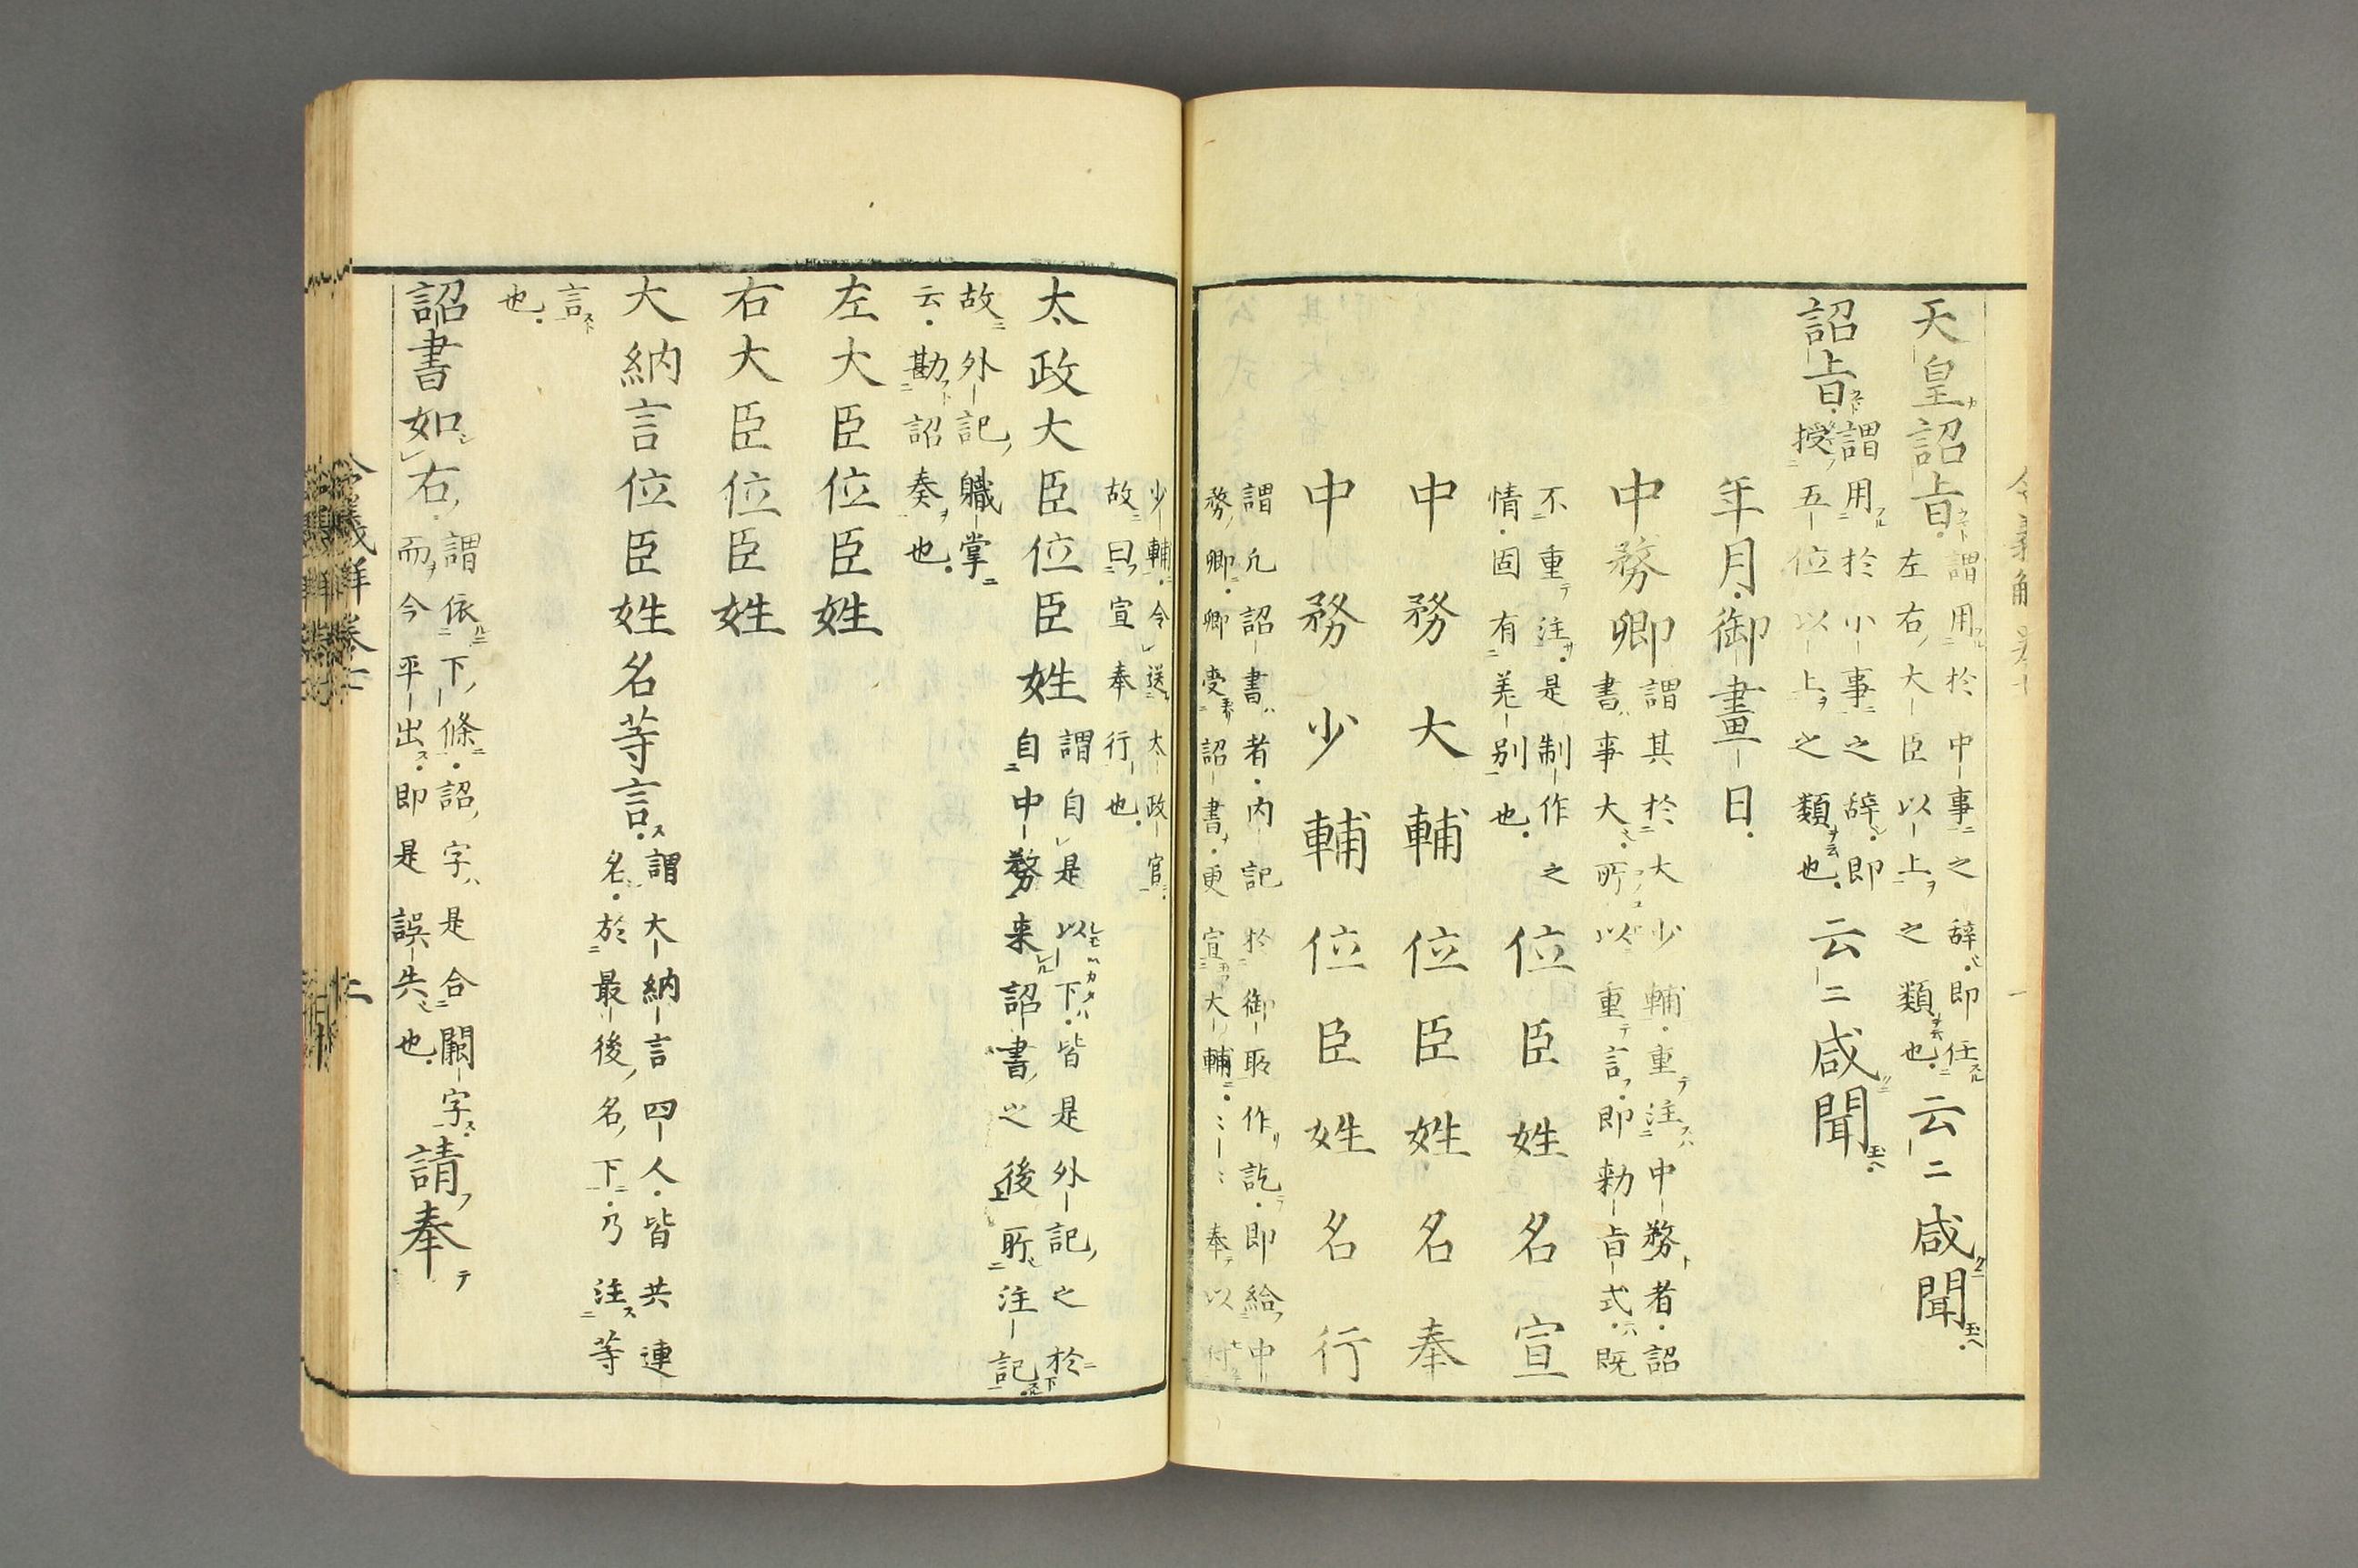 天皇詔旨謂用於中事之辞即任
左右大臣以上之類也云二咸聞
詔旨謂用於小事之辞即
授五位以上之類也云二咸聞
年月御畫日
中務卿謂其於大少輔重注中務者詔
書事大所以重言即勅旨式既
不重注是制作之
情固有差別也位臣姓名宣
中務大輔位臣姓名奉
中務少輔位臣姓名行
謂凡詔書者内記於御取作訖即給中
務卿卿受詔書更宣大輔〻〻奉以付
少輔令送太政官
故曰宣奉行也
太政大臣位臣姓謂自是以下皆是外記之於
自中務来詔書之後上所注記
故外記職掌
云勘詔奏也
左大臣位臣姓
右大臣位臣姓
大納言位臣姓名等言謂大納言四人皆共連
名於最後名下乃注等
言
也
詔書如右謂依下條詔字是合闕字
而今平出即是誤失也請奉
令義解巻七